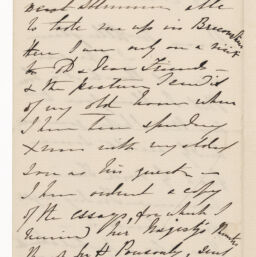 next Summer able
to take me up in Brecon
Here I am only on a visit
to D & dear Friend —
& the picture I send is
of my old home where
I have been spending
Xmas with my eldest
Son as his guest —
I have ordered a copy
of the essays, for which I
received her Majesty's Thanks
thro' Sir H Ponsonby, sent